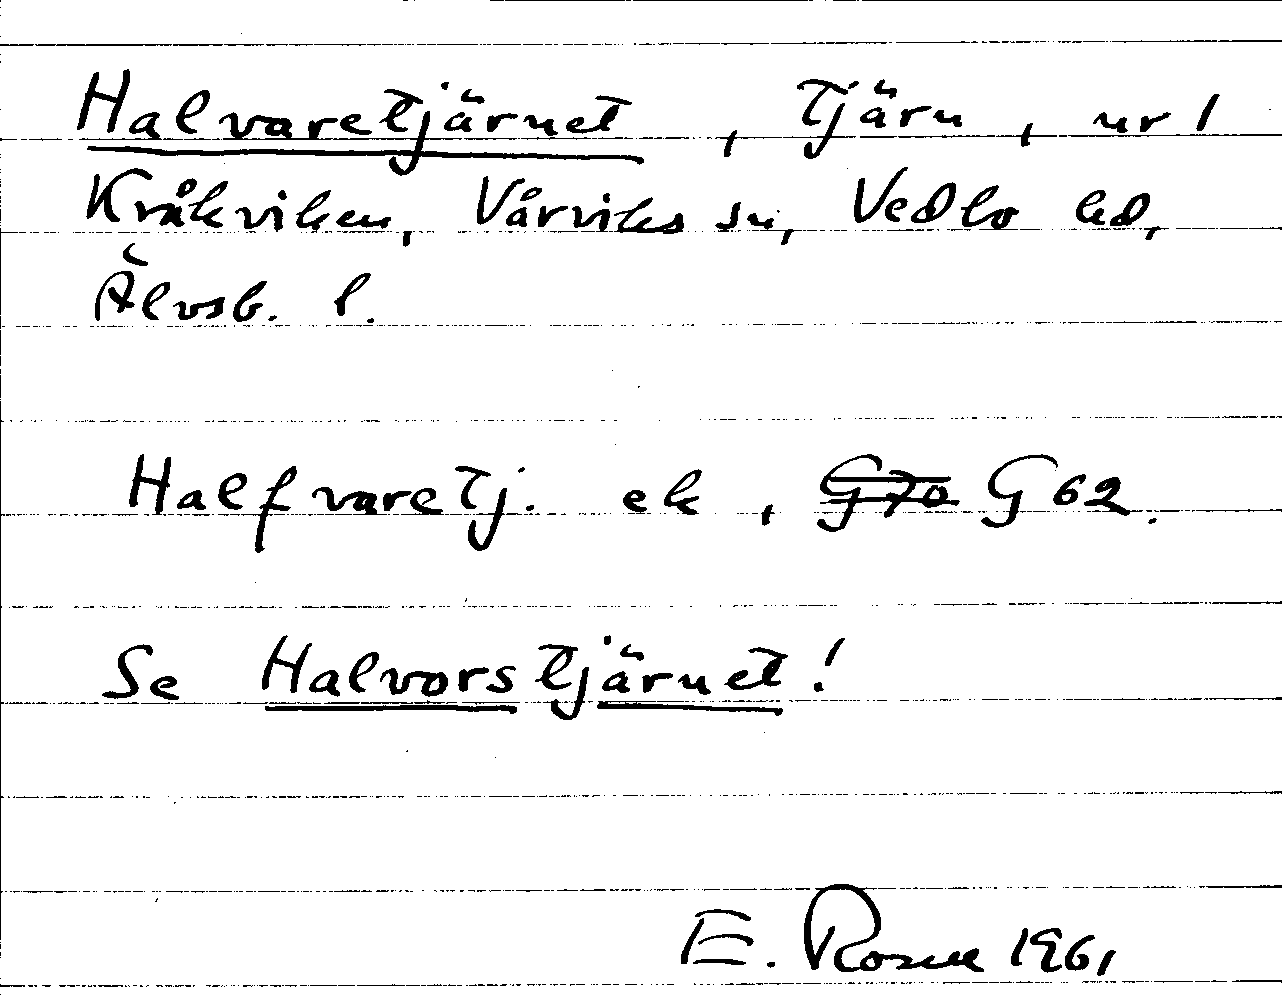 Halvaretjärnet, tjärn, nr 1
Kråkviken, Vårviks sn, Vedbo hd,
Älvsb. l.
Halfvaretj. ek, G 70 G 62.
Se Halvorstjärnet!
E. Rosen 1961